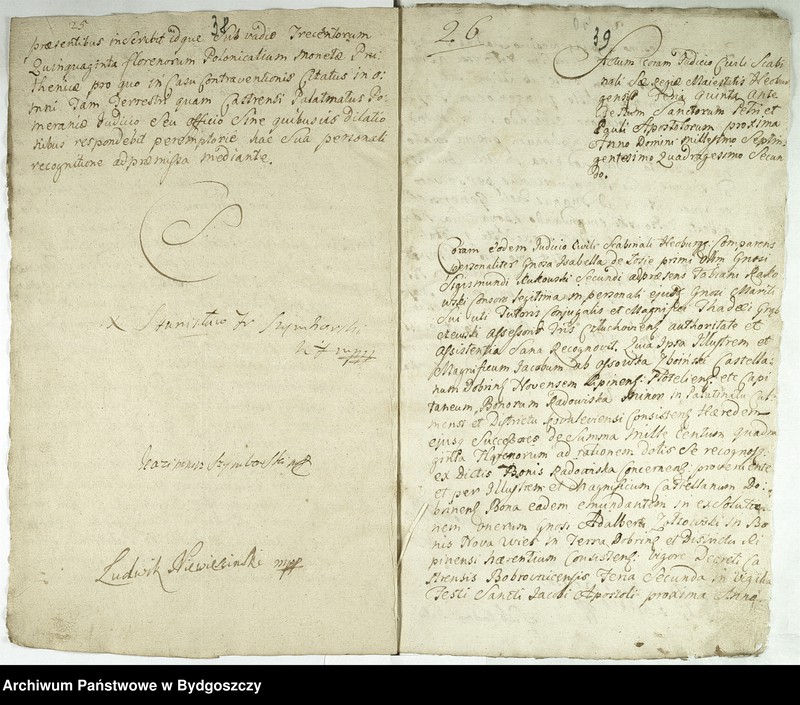 25
38
præsentibus inscribit idque sub vadio Trecentorum
Quinquaginta florenorum Polonicalium Monetæ Pru
thenicæ pro quo in Casu Contraventionis Citatus in o=
mni tam Terrestri quam Castrensi Palatinatus Po
meraniæ Judicio Seu officio Sine quibusvis Dilatio
nibus respondebit peremptorie hac Sua personali
recognitione ad præmissa mediante.
X Stanislaw
mpp
Kazimierz Szymborski mpp
Ludwik Niewieścinski mpp
26
39
Actum Coram Judicio Civili Scabi
nali Sæ Regiæ Maiestatis
gensis Feria Quinta Ante
Festum Sanctorum Petri et
Pauli Apostolorum proxima
Anno Domini Millesimo Septin
gentesimo Quadragesimo Secun
do.
Coram eodem Judicio Civili Scabinali Comparens
personaliter Gnosa Isabella de primi olim Gnosi
Sigismundi Secundi ad præsens Fabiani Rado
wski Consors legitima in personali Gnosi Mariti
Sui uti Tutoris Conjugalis et Magnifici Thadæi
Assessoris authoritate et
Assistentia Sana Recognovit Quia Ipsa Illustrem et
Magnificum Jacobum ab Ossowka Zboinski Castella=
num Dobrinensem et Capi
taneum, Bonorum Radowiska Minor in Palatinatu Cul=
mensi et Districtu Consistens Hæredem
ejusque Successores de summa Mille Centum Quadra
ginta Florenorum ad rationem dotis Se recognos
ex Dictis Bonis Radowiska Concernens proveniente
et per Illustrem et Magnificum Castellanum Do=
brinens Bona eadem emundantem in exsolutio=
nem onerum Gnosi Adalberti in Bo
nis Nova Wies in Terra Dobrinens et Districtu Li
pinensi hærentium Consistens Vigore Decreti Ca
strensis Bobrovnicensis Feria Secunda in Vigilia
Festi Sancti Jacobi Apostoli proxima Anno
Archiwum Państwowe w Bydgoszczy